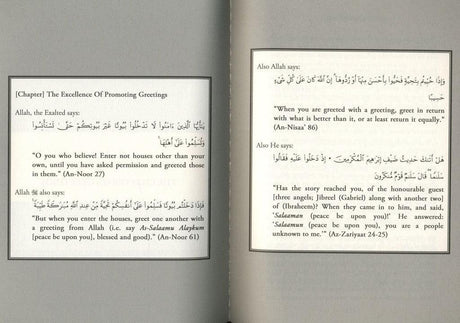 [Chapter] The Excellence Of Promoting Greetings
Allah, the Exalted says:
يَٰٓأَيُّهَا الَّذِينَ ءَامَنُوا لَا تَدْخُلُوا بُيُوتًا غَيْرَ بُيُوتِكُمْ حَتَّىٰ تَسْتَأْنِسُوا
وَتُسَلِّمُوا عَلَىٰ أَهْلِهَا
"O you who believe! Enter not houses other than your
own, until you have asked permission and greeted those
in them." (An-Noor 27)
Allah ﷻ also says:
فَإِذَا دَخَلْتُم بُيُوتًا فَسَلِّمُوا عَلَىٰ أَنفُسِكُمْ تَحِيَّةً مِّنْ عِندِ اللَّهِ مُبَٰرَكَةً طَيِّبَةً
"But when you enter the houses, greet one another with
a greeting from Allah (i.e. say As-Salaamu Alaykum
[peace be upon you], blessed and good)." (An-Noor 61)
Also Allah says:
وَإِذَا حُيِّيتُم بِتَحِيَّةٍ فَحَيُّوا بِأَحْسَنَ مِنْهَا أَوْ رُدُّوهَا إِنَّ اللَّهَ كَانَ عَلَىٰ كُلِّ شَىْءٍ
حَسِيبًا
"When you are greeted with a greeting, greet in return
with what is better than it, or at least return it equally."
(An-Nisaa' 86)
Also He says:
هَلْ أَتَىٰكَ حَدِيثُ ضَيْفِ إِبْرَٰهِيمَ الْمُكْرَمِينَ • إِذْ دَخَلُوا عَلَيْهِ فَقَالُوا
سَلَٰمًا قَالَ سَلَٰمٌ قَوْمٌ مُّنكَرُونَ
"Has the story reached you, of the honourable guest
[three angels; Jibreel (Gabriel) along with another two]
of (Ibraheem)? When they came in to him, and said,
'Salaaman (peace be upon you)!' He answered:
'Salaamun (peace be upon you), you are a people
unknown to me.'" (Az-Zariyaat 24-25)